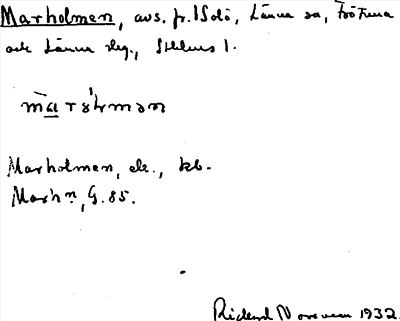 Marholmen, avs. fr. Solö, Länna sn, Frötuna
och Länna skg., Sthlms l.
Marholmen, ek., kb.
Marhn, G. 85.
Rickard Norevan 1932.